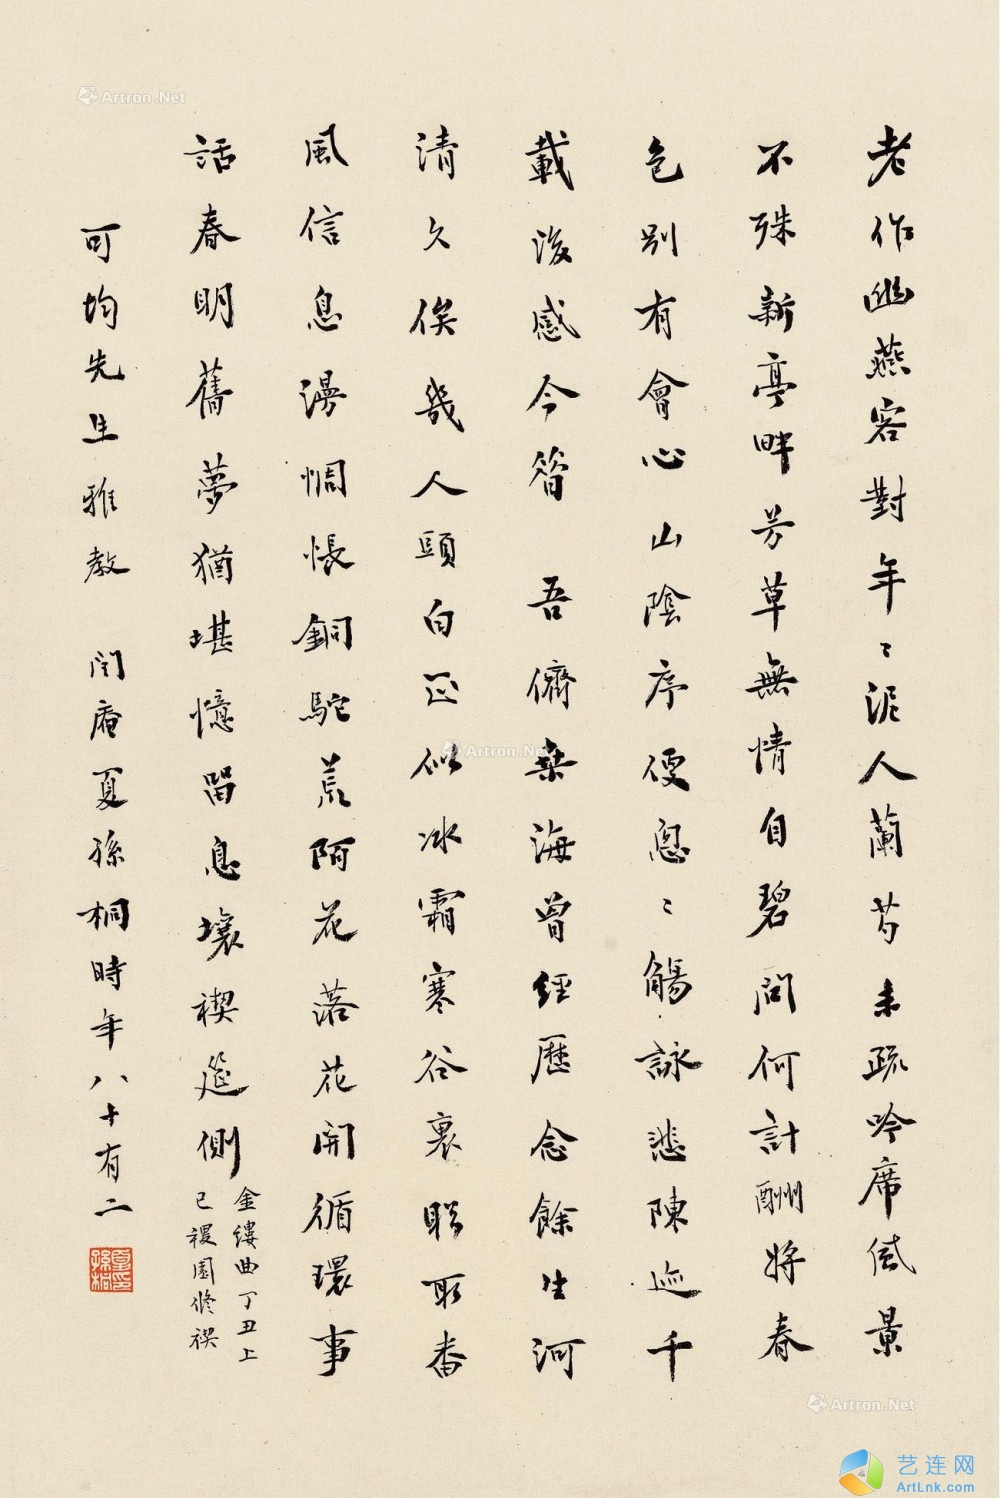 老作幽燕客對年〻泥人蘭芍未疏吟席風景
不殊新亭畔芳草無情自碧問何計酬將春
色別有會心山陰序便悤〻觴詠悲陳迹千
載後感今昔 吾儕桑海曾經歷念餘生河
清久俟幾人頭白正似冰霜寒谷裏聆取番
風信息漫惆悵銅駝荒陌花落花開循環事
話春明舊夢猶堪憶留息壤禊筵側
金縷曲丁丑上
巳禝園修禊
可均先生雅教 閏庵夏孫桐時年八十有二
夏印孫桐
Artron.Net
Artron.Net
Artron.Net
艺连网
ArtLnk.com